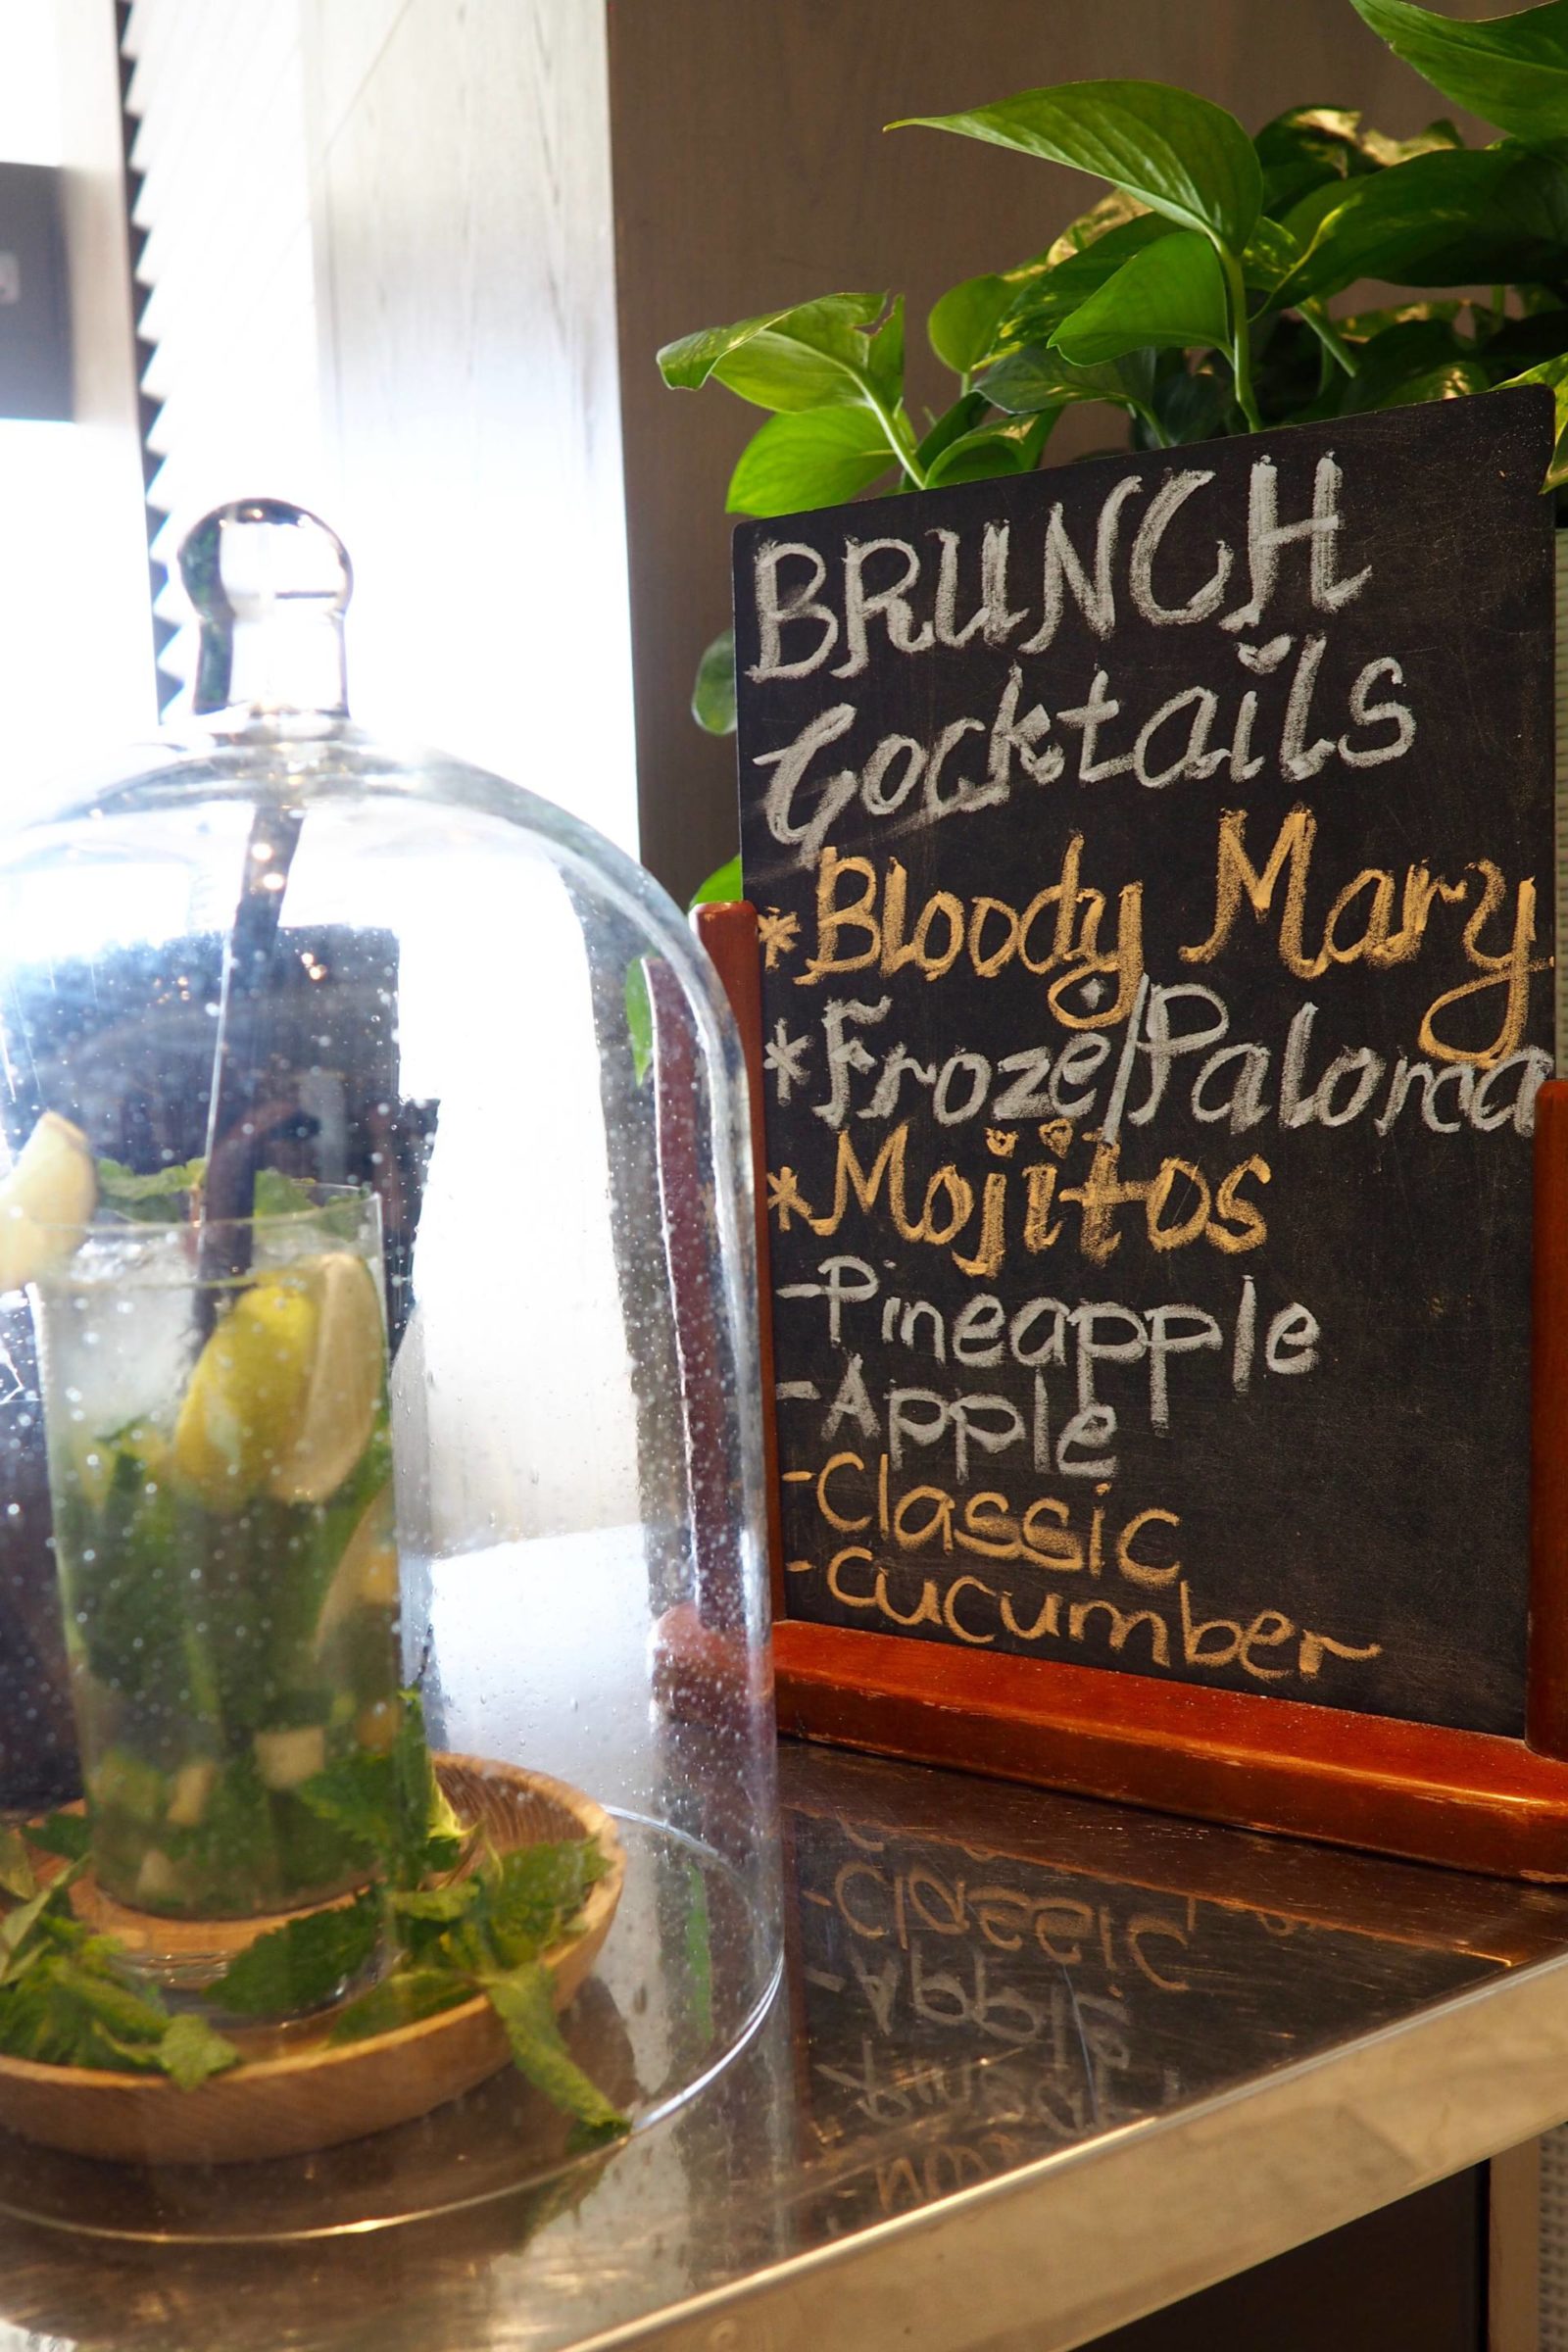 BRUNCH
Cocktails
*Bloody Mary
*Frozé/Paloma
*Mojitos
-Pineapple
-Apple
-Classic
-cucumber